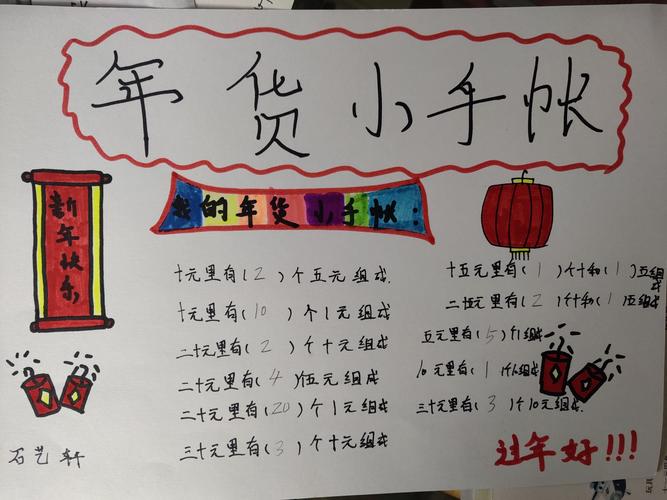 年货小手帐
我的年货小手帐:
新年快乐
十元里有(2)个五元组成.
十元里有(10)个1元组成.
二十元里有(2)个十元组成.
二十元里有(4)伍元组成
二十元里有(20)个1元组成
三十元里有(3)个十元组成
十五元里有(1)个十和(1)五组成
二十五元里有(2)个十和(1)五组成
五元里有(5)个1组成
10元里有(1)个10组成
三十元里有(3)个10元组成.
石艺轩
过年好!!!